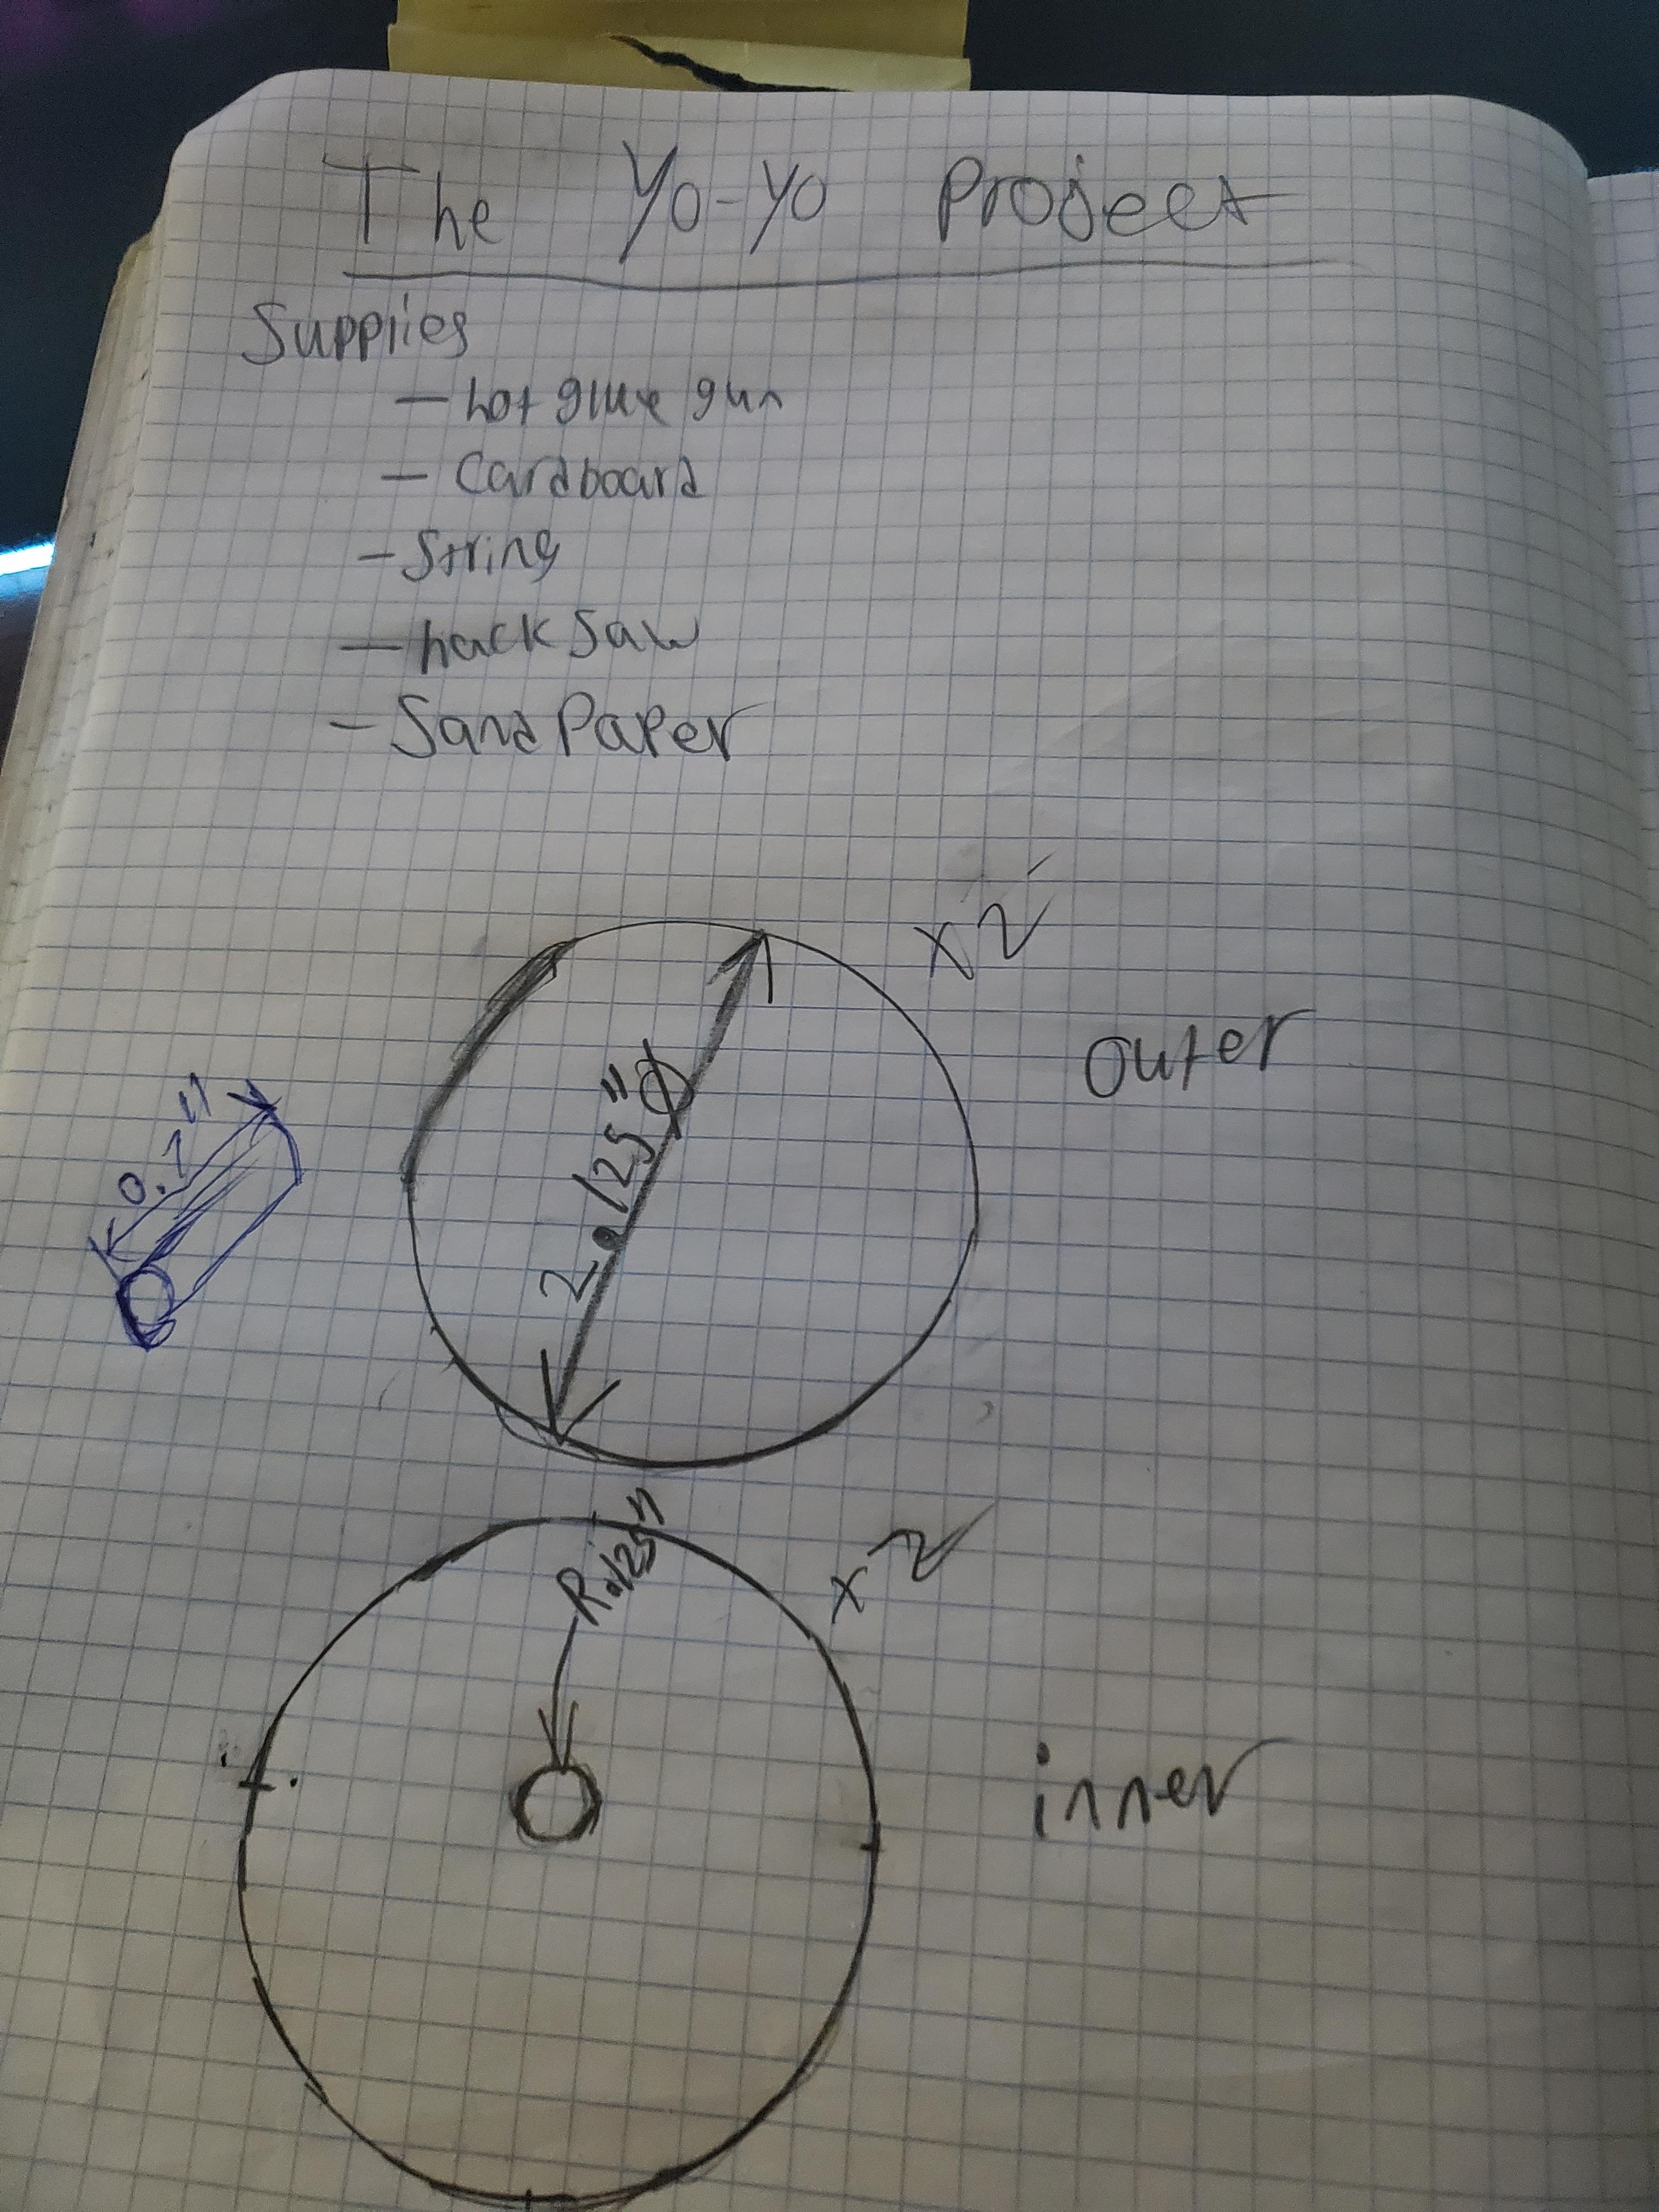 The Yo-Yo Project
Supplies
- hot glue gun
- Cardboard
- String
- hack saw
- Sand Paper
x2
outer
2.125"Ø
0.7"
R.125"
x2
inner